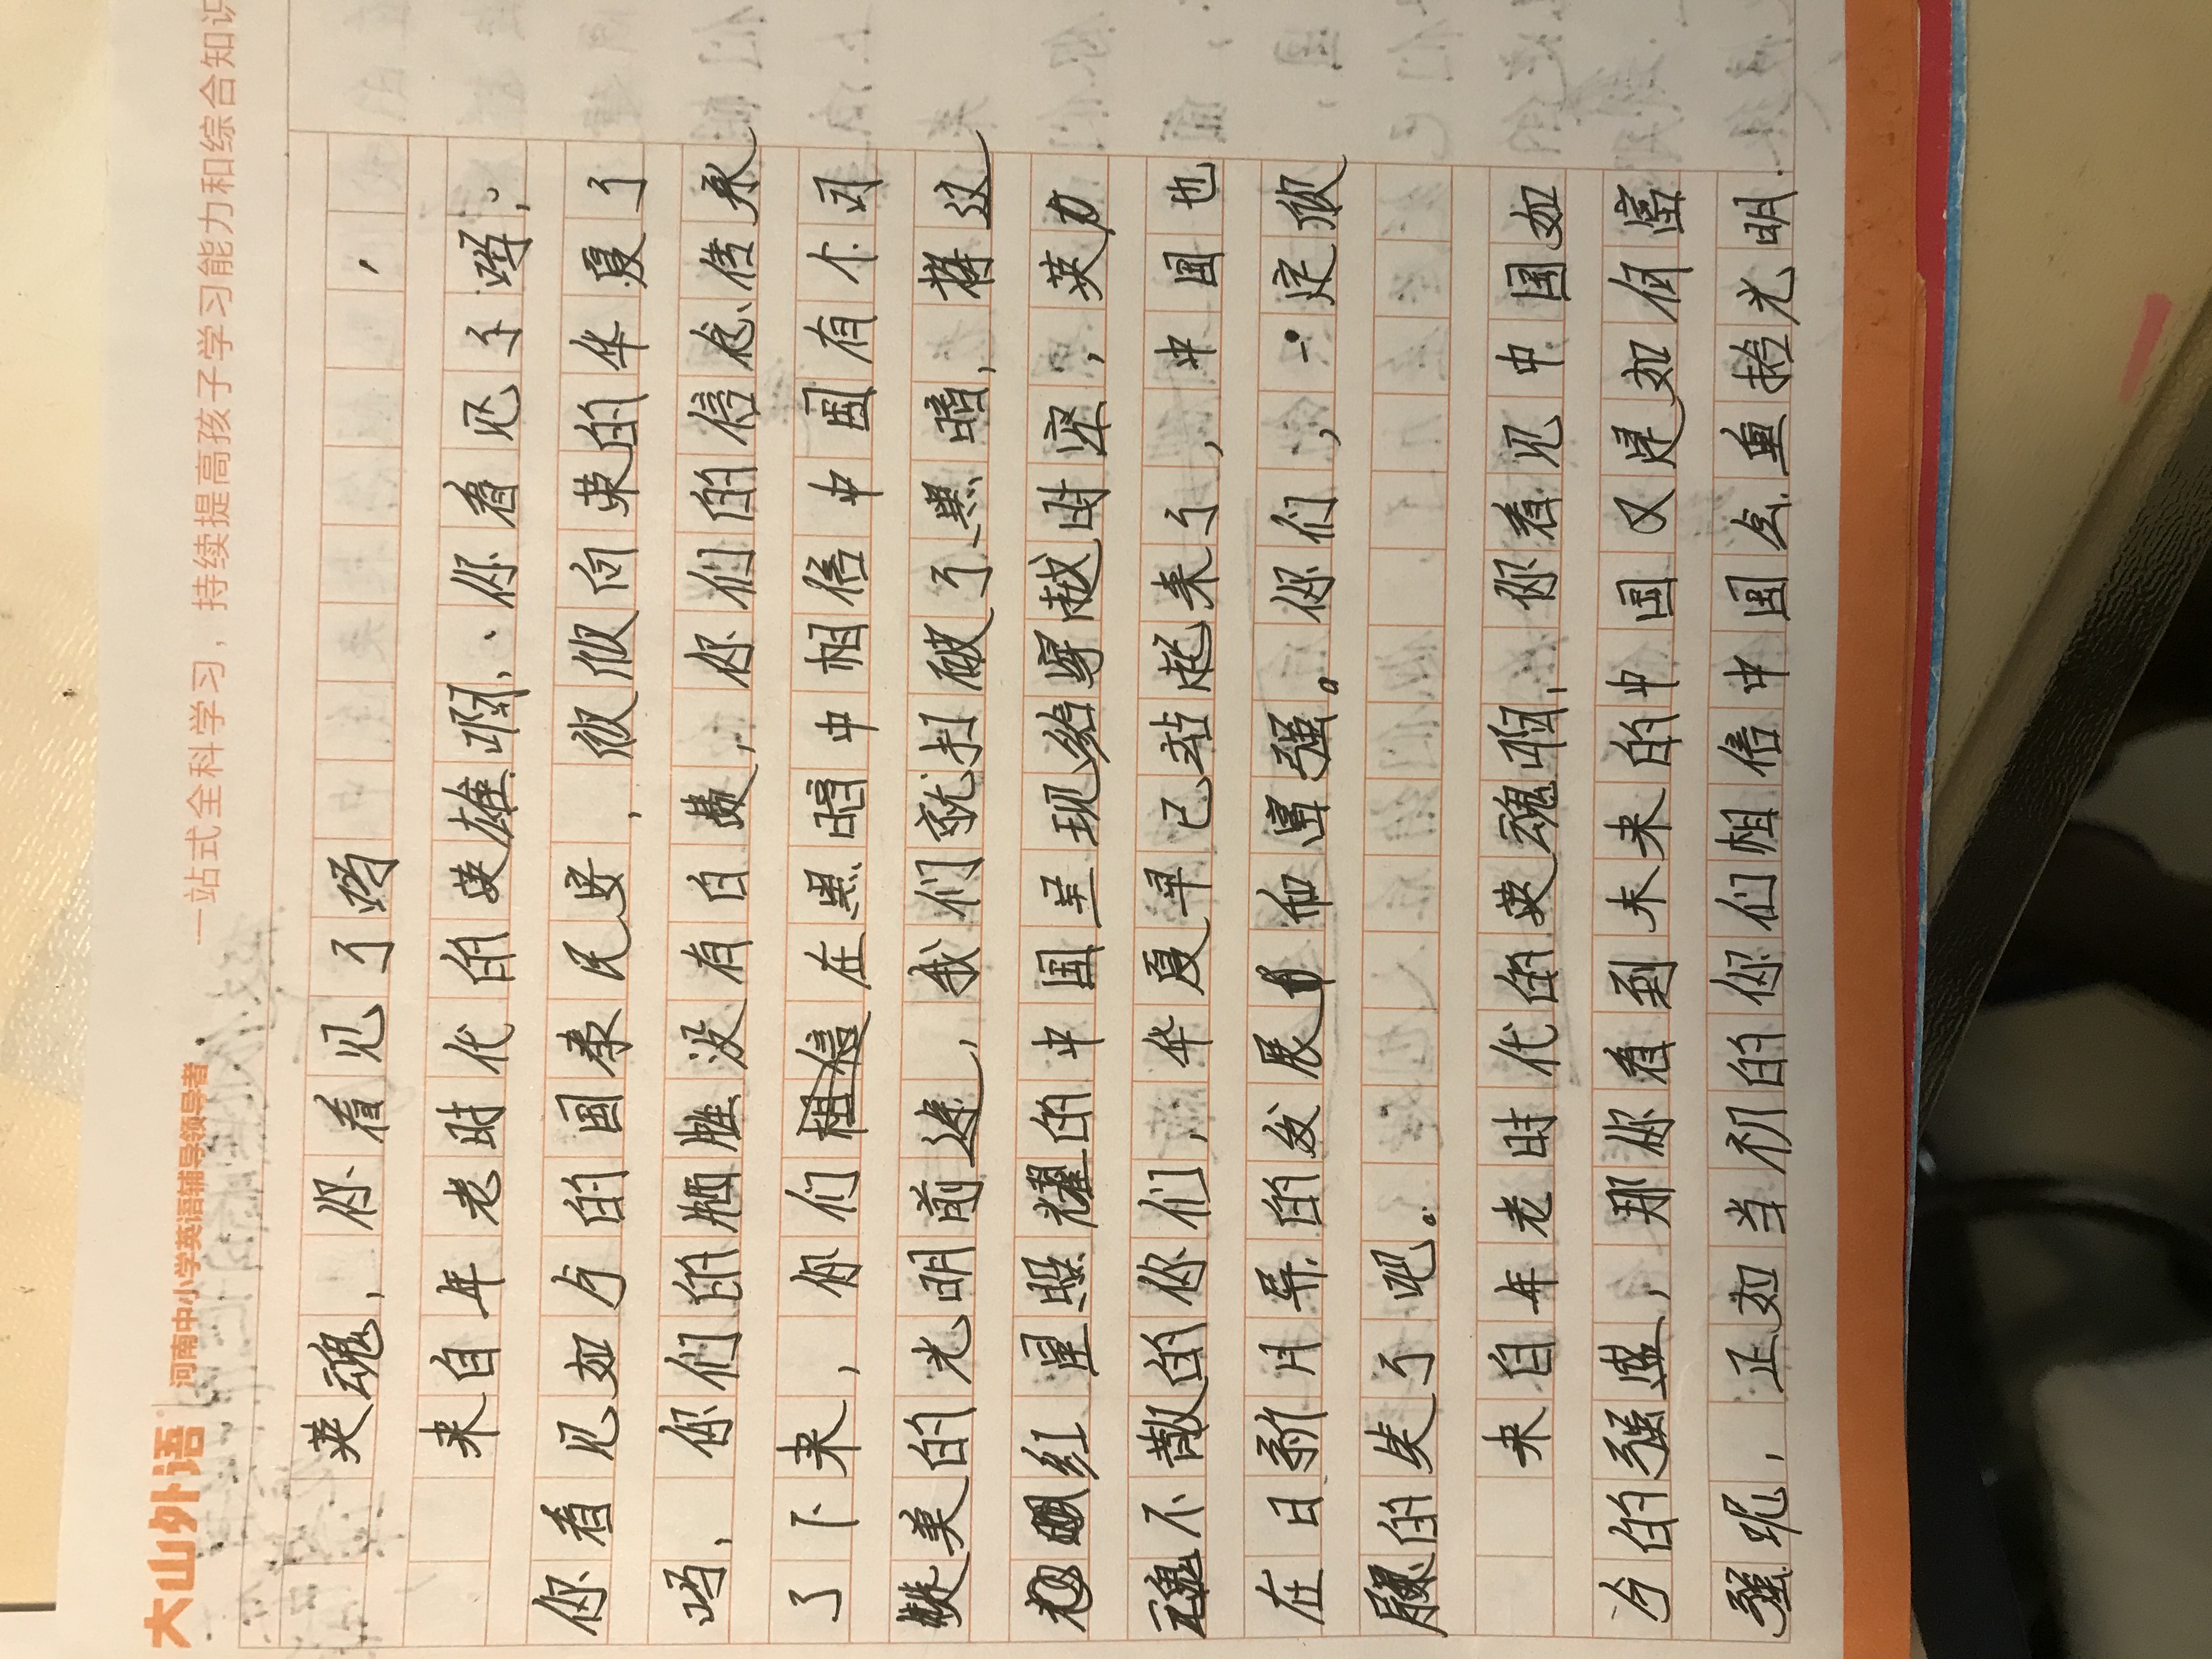 大山外语 河南中小学英语辅导领导者 一站式全科学习，持续提高孩子学习能力和综合知识
英魂，你看见了吗
来自年老时代的英雄啊，你看见了吗，
你看见如今的国泰民安，欣欣向荣的华夏了
吗，你们的牺牲没有白费，你们的信念传承
了下来，你们在黑暗中相信中国有个闪
美的光明前途，我们就打破了黑暗，将这
红星照耀的中国呈现给穿越时空，英
魂不散的你们，华夏早已站起来了，中国也
在日新月异的发展和富强。你们，一定欣
的笑了吧。
来自年老时代的英魂啊，你看见中国如
今的强盛，那你看到未来的中国又是如何富
强呢，正如当初的你们相信中国会重拾光明